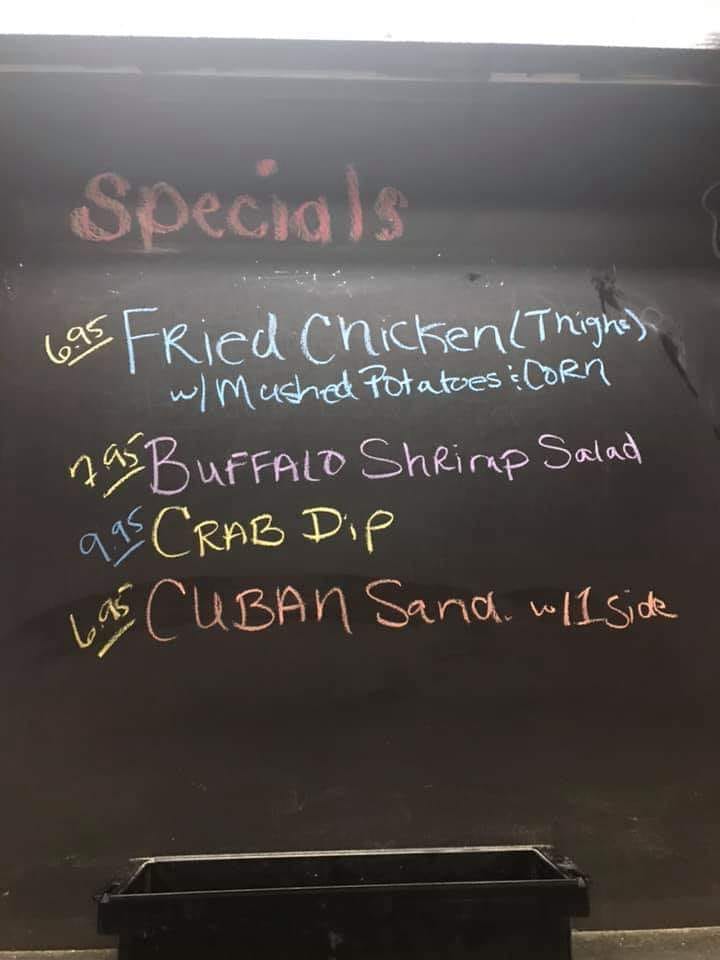 Specials
6.95 Fried Chicken (Thighs)
w/ Mashed Potatoes & Corn
7.95 Buffalo Shrimp Salad
9.95 Crab Dip
6.95 Cuban Sand. w/ 1 Side